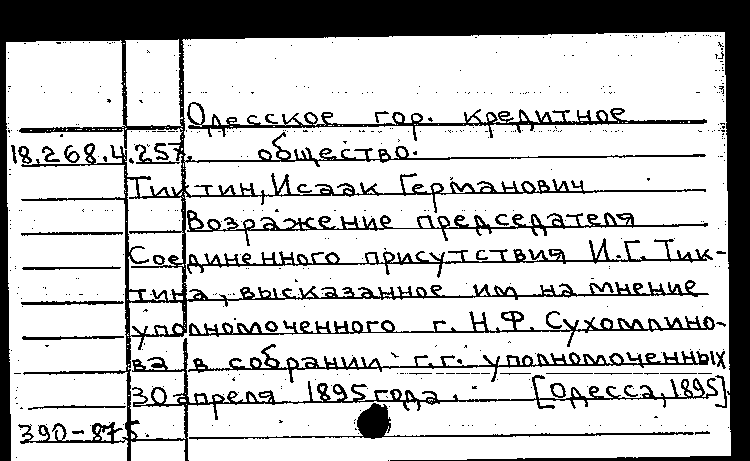 Одесское гор. кредитное
18.268.4.257. общество.
Тиктин, Исаак Германович
Возражение председателя
Соединенного присутствия И.Г. Тик-
тина, высказанное им на мнение
уполномоченного г. Н.Ф. Сухомлино-
ва в собрании г.г. уполномоченных
30 апреля 1895 года. [Одесса, 1895]
390-875.